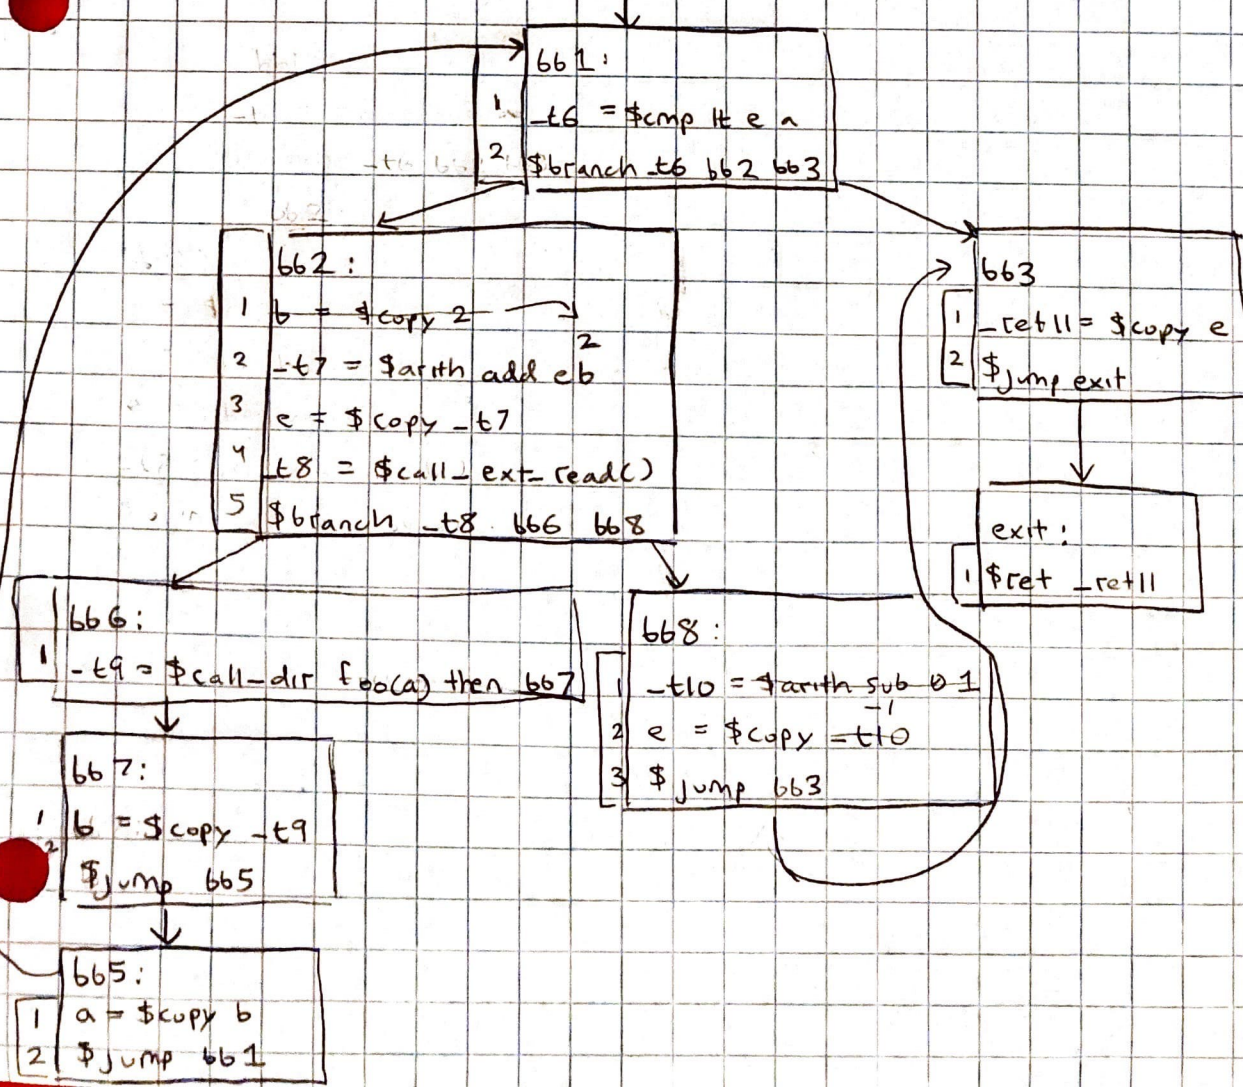 bb1:
1 _t6 = $cmp lt e a
2 $branch _t6 bb2 bb3
bb2:
1 b = $copy 2
2
2 _t7 = $arith add e b
3 e = $copy _t7
4 _t8 = $call_ext_read()
5 $branch _t8 bb6 bb8
bb3
1 _ret11 = $copy e
2 $jump exit
exit:
1 $ret _ret11
bb6:
1 _t9 = $call_dir foo(a) then bb7
bb8:
1 _t10 = $arith sub 0 1
-1
2 e = $copy _t10
3 $jump bb3
bb7:
1 b = $copy _t9
2 $jump bb5
bb5:
1 a = $copy b
2 $jump bb1